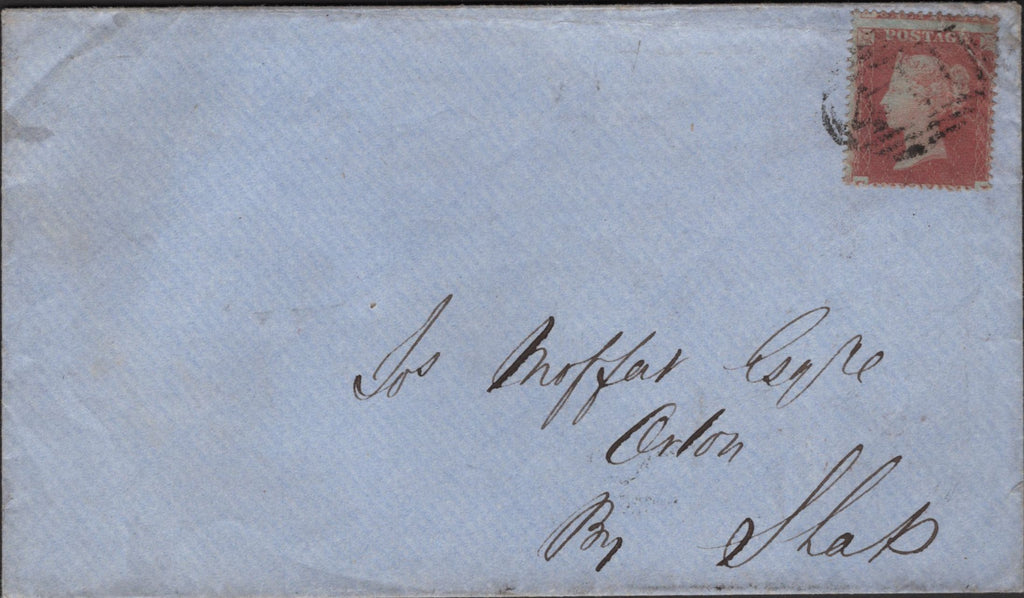 POSTAGE
Jos Moffat Esqre
Orton
By Shap